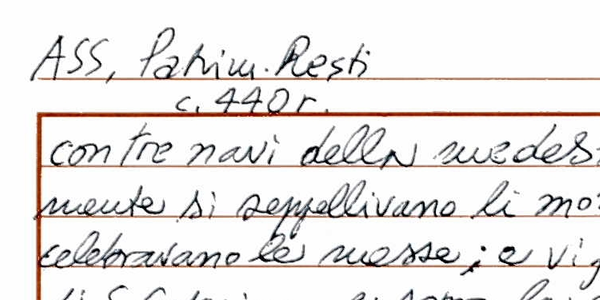 ASS, Patrim. Resti
c. 440 r.
con tre navi della medes
mente si seppellivano li mo
celebravano le messe; e vi